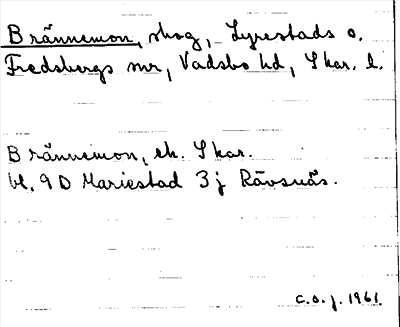 Brännemon, skog, Lyrestads o.
Fredsbergs snr, Vadsbo hd, Skar. l.
Brännemon, ek. Skar.
bl. 9D Mariestad 3j Rävsnäs.
C.O.J. 1961.